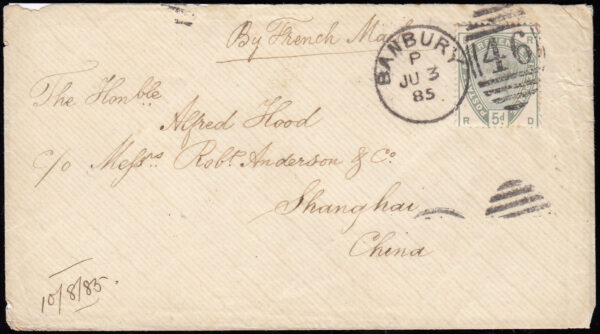 By French Mail
BANBURY
P
JU 3
85
46
R
POSTAGE
R 5d D
The Honble
Alfred Hood
c/o Messrs Robt. Anderson & Co
Shanghai
China
10/8/85.